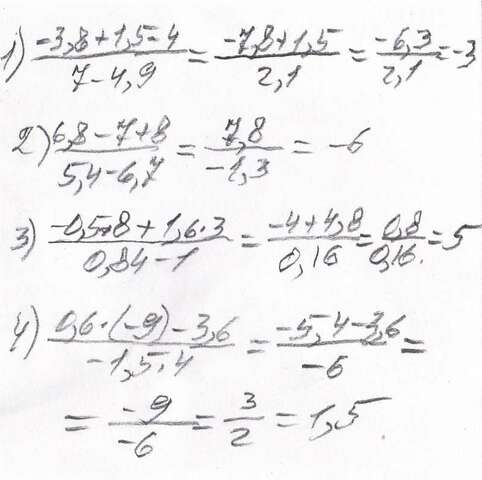 1) (-3,8+1,5-4)/(7-4,9) = (-7,8+1,5)/(2,1) = (-6,3)/(2,1) = -3
2) (6,8-7+8)/(5,4-6,7) = (7,8)/(-1,3) = -6
3) (-0,5·8+1,6·3)/(0,84-1) = (-4+4,8)/(0,16) = (0,8)/(0,16) = 5
4) (0,6·(-9)-3,6)/(-1,5·4) = (-5,4-3,6)/(-6) =
= (-9)/(-6) = 3/2 = 1,5